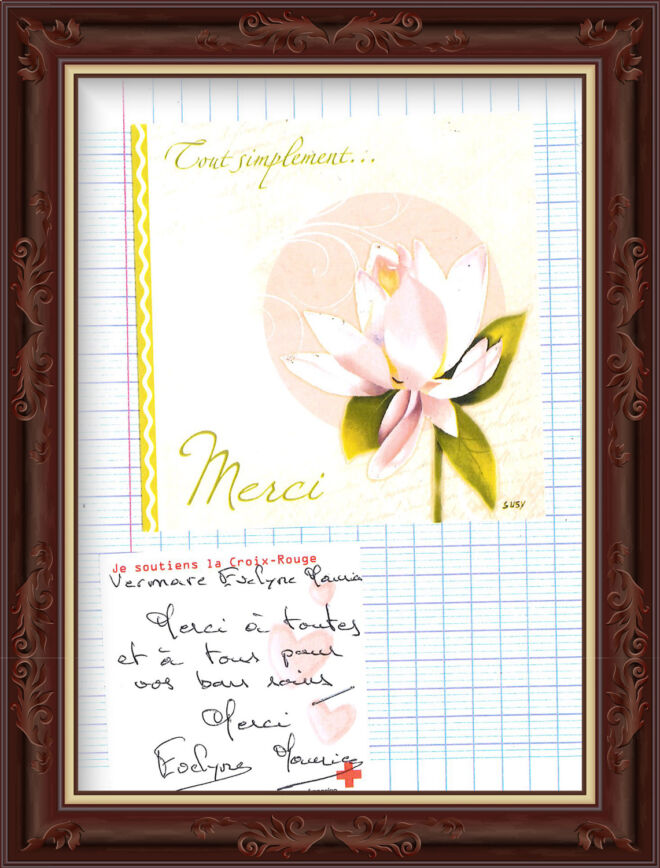 Tout simplement...
Merci
SUSY
Je soutiens la Croix-Rouge
Vermare Evelyne Maurice
Merci à toutes
et à tous pour
vos bons soins
Merci
Evelyne Maurice